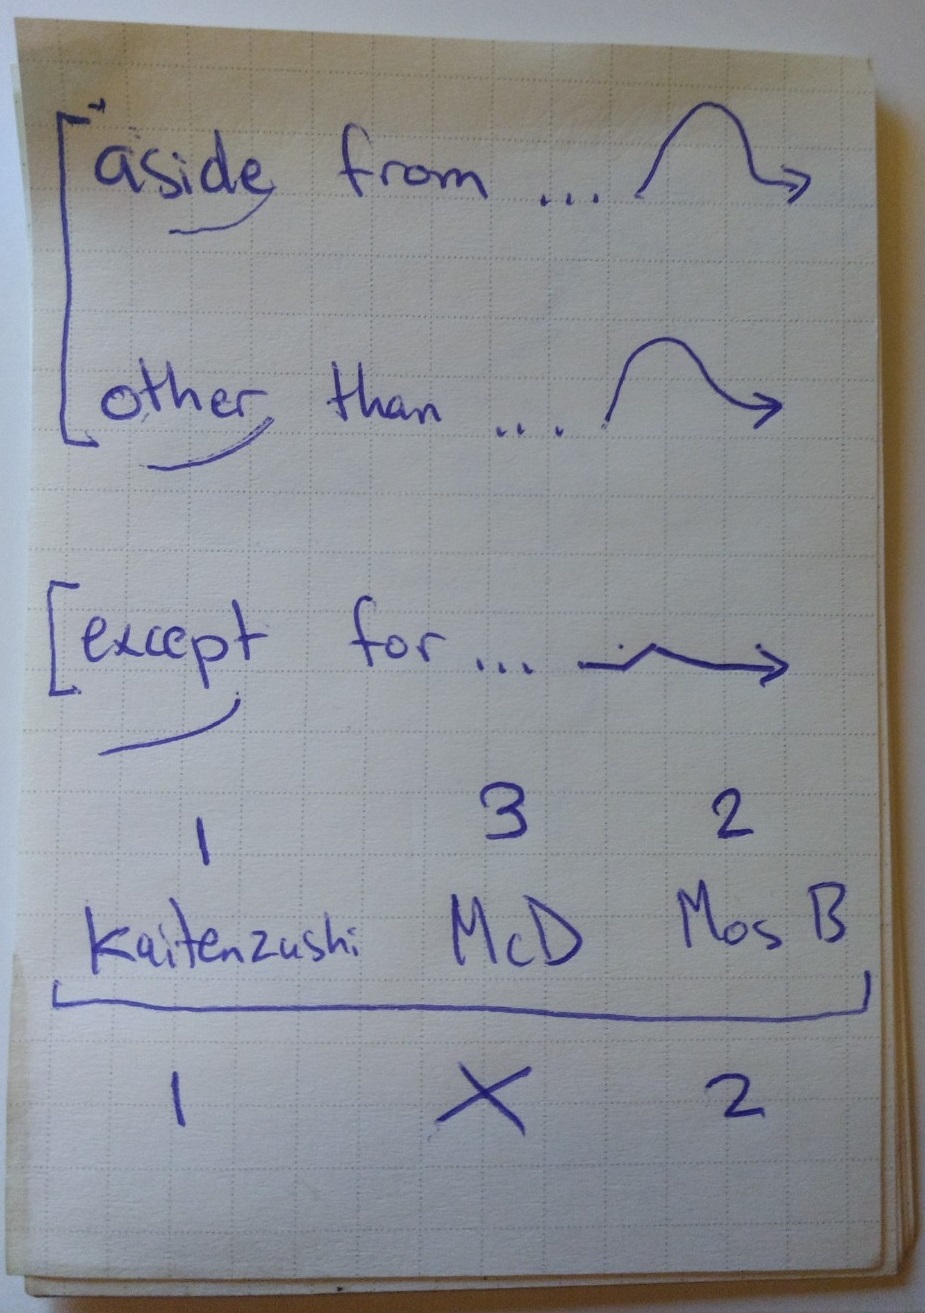 aside from ...
other than ....
except for ...
1 3 2
Kaitenzushi McD Mos B
1 X 2